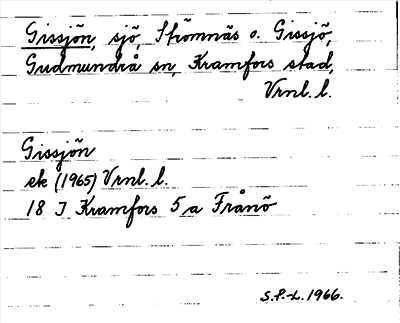 Gissjön, sjö, Strömnäs o. Gissjö,
Gudmundrå sn, Kramfors stad,
Vrnl. l.
Gissjön
ek (1965) Vrnl. l.
18 I Kramfors 5 a Frånö
S.P.-L. 1966.